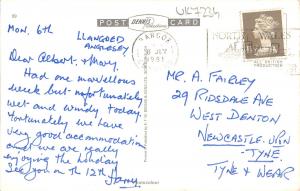 UK5234
89
POST CARD
DENNIS
PRODUCTIONS
Mon. 6th LLANGOED
ANGLESEY
Dear Albert & Mary.
Had one marvellous
week but unfortunately
wet and windy today.
Fortunately we have
very good accommodation
and we are really
enjoying the holiday
See you on the 12th
Harry.
BANGOR
6 JLY
1981
NORTH WALES
ALL BRITISH
PRODUCTION
MR. A. FAIRLEY
29 RIDSDALE AVE
WEST DENTON
NEWCASTLE. UPN
TYNE.
TYNE & WEAR